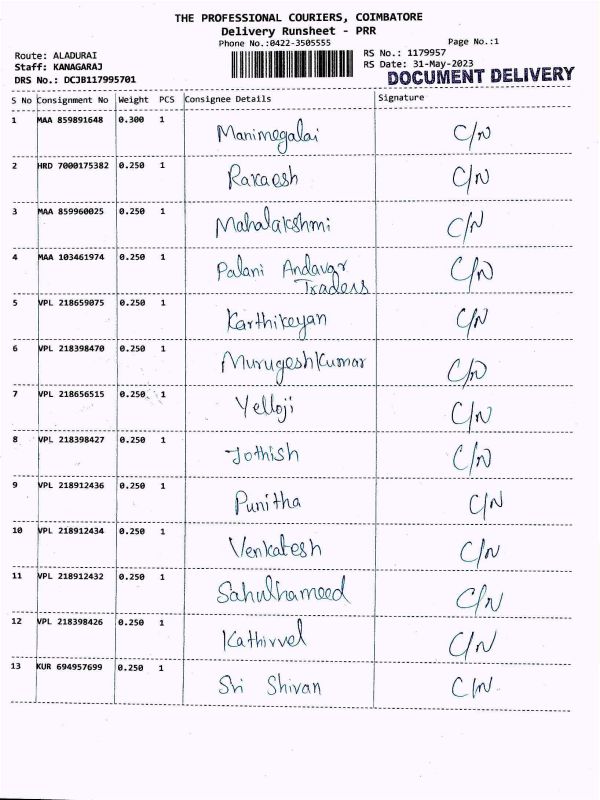 THE PROFESSIONAL COURIERS, COIMBATORE
Delivery Runsheet - PRR
Phone No.:0422-3505555
Page No.:1
Route: ALADURAI
RS No.: 1179957
Staff: KANAGARAJ
RS Date: 31-May-2023
DRS No.: DCJB117995701
DOCUMENT DELIVERY
S No Consignment No Weight PCS Consignee Details Signature
1 MAA 859891648 0.300 1 Manimegalai C/N
2 HRD 7000175382 0.250 1 Rakaesh C/N
3 MAA 859960025 0.250 1 Mahalakshmi C/N
4 MAA 103461974 0.250 1 Palani Andavar C/N
Traders
5 VPL 218659075 0.250 1 Karthikeyan C/N
6 VPL 218398470 0.250 1 Murugeshkumar C/N
7 VPL 218656515 0.250 1 Yelloji C/N
8 VPL 218398427 0.250 1 Jothish C/N
9 VPL 218912436 0.250 1 Punitha C/N
10 VPL 218912434 0.250 1 Venkatesh C/N
11 VPL 218912432 0.250 1 Sahulhameed C/N
12 VPL 218398426 0.250 1 Kathirvel C/N
13 KUR 694957699 0.250 1 Sri Shivan C/N